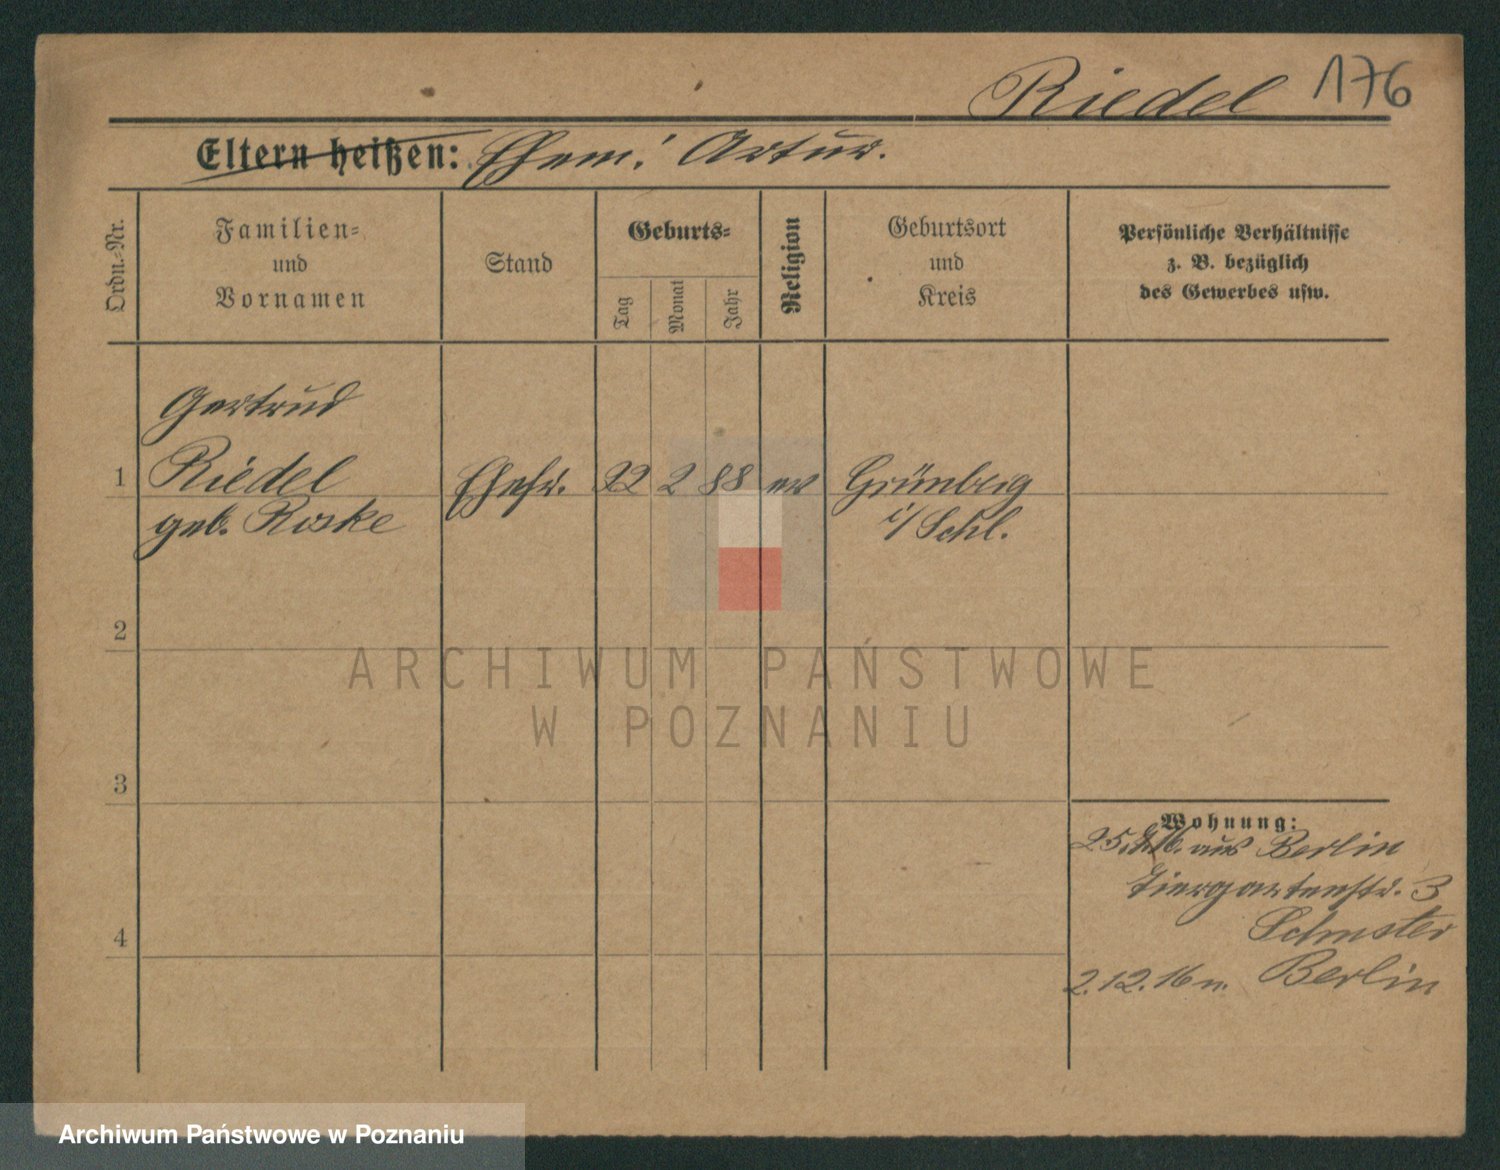 Riedel 176
Eltern heißen: Ehem: Artur.
Ordn.-Nr.
Familien-
und
Vornamen
Stand
Geburts-
Tag
Monat
Jahr
Religion
Geburtsort
und
Kreis
Persönliche Verhältnisse
z. B. bezüglich
des Gewerbes usw.
Gertrud
1 Riedel Ehefr. 22 2 88 ev Grünberg
geb. Roske i/ Schl.
2
ARCHIWUM PAŃSTWOWE
W POZNANIU
3
Wohnung:
aus Berlin
Tiergartenstr. 3
4
2.12.16 n. Berlin
Archiwum Państwowe w Poznaniu